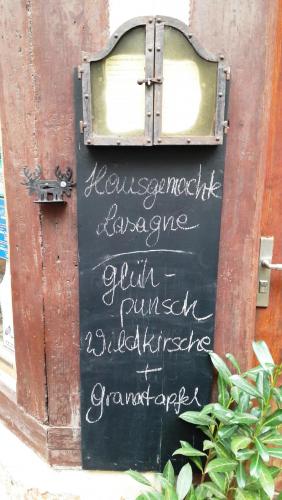 Hausgemachte
Lasagne
Glüh-
punsch
Wildkirsche
+
Granatapfel